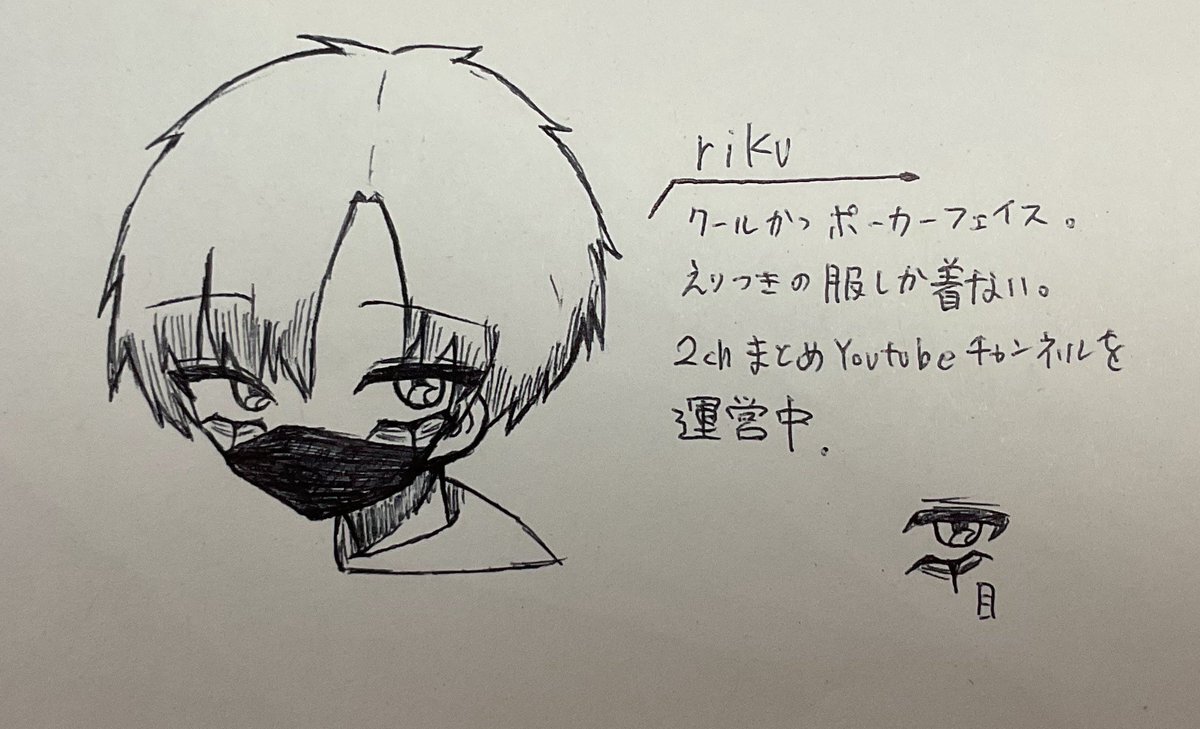 riku
クールかつポーカーフェイス。
えりつきの服しか着ない。
2chまとめYoutubeチャンネルを
運営中.
目